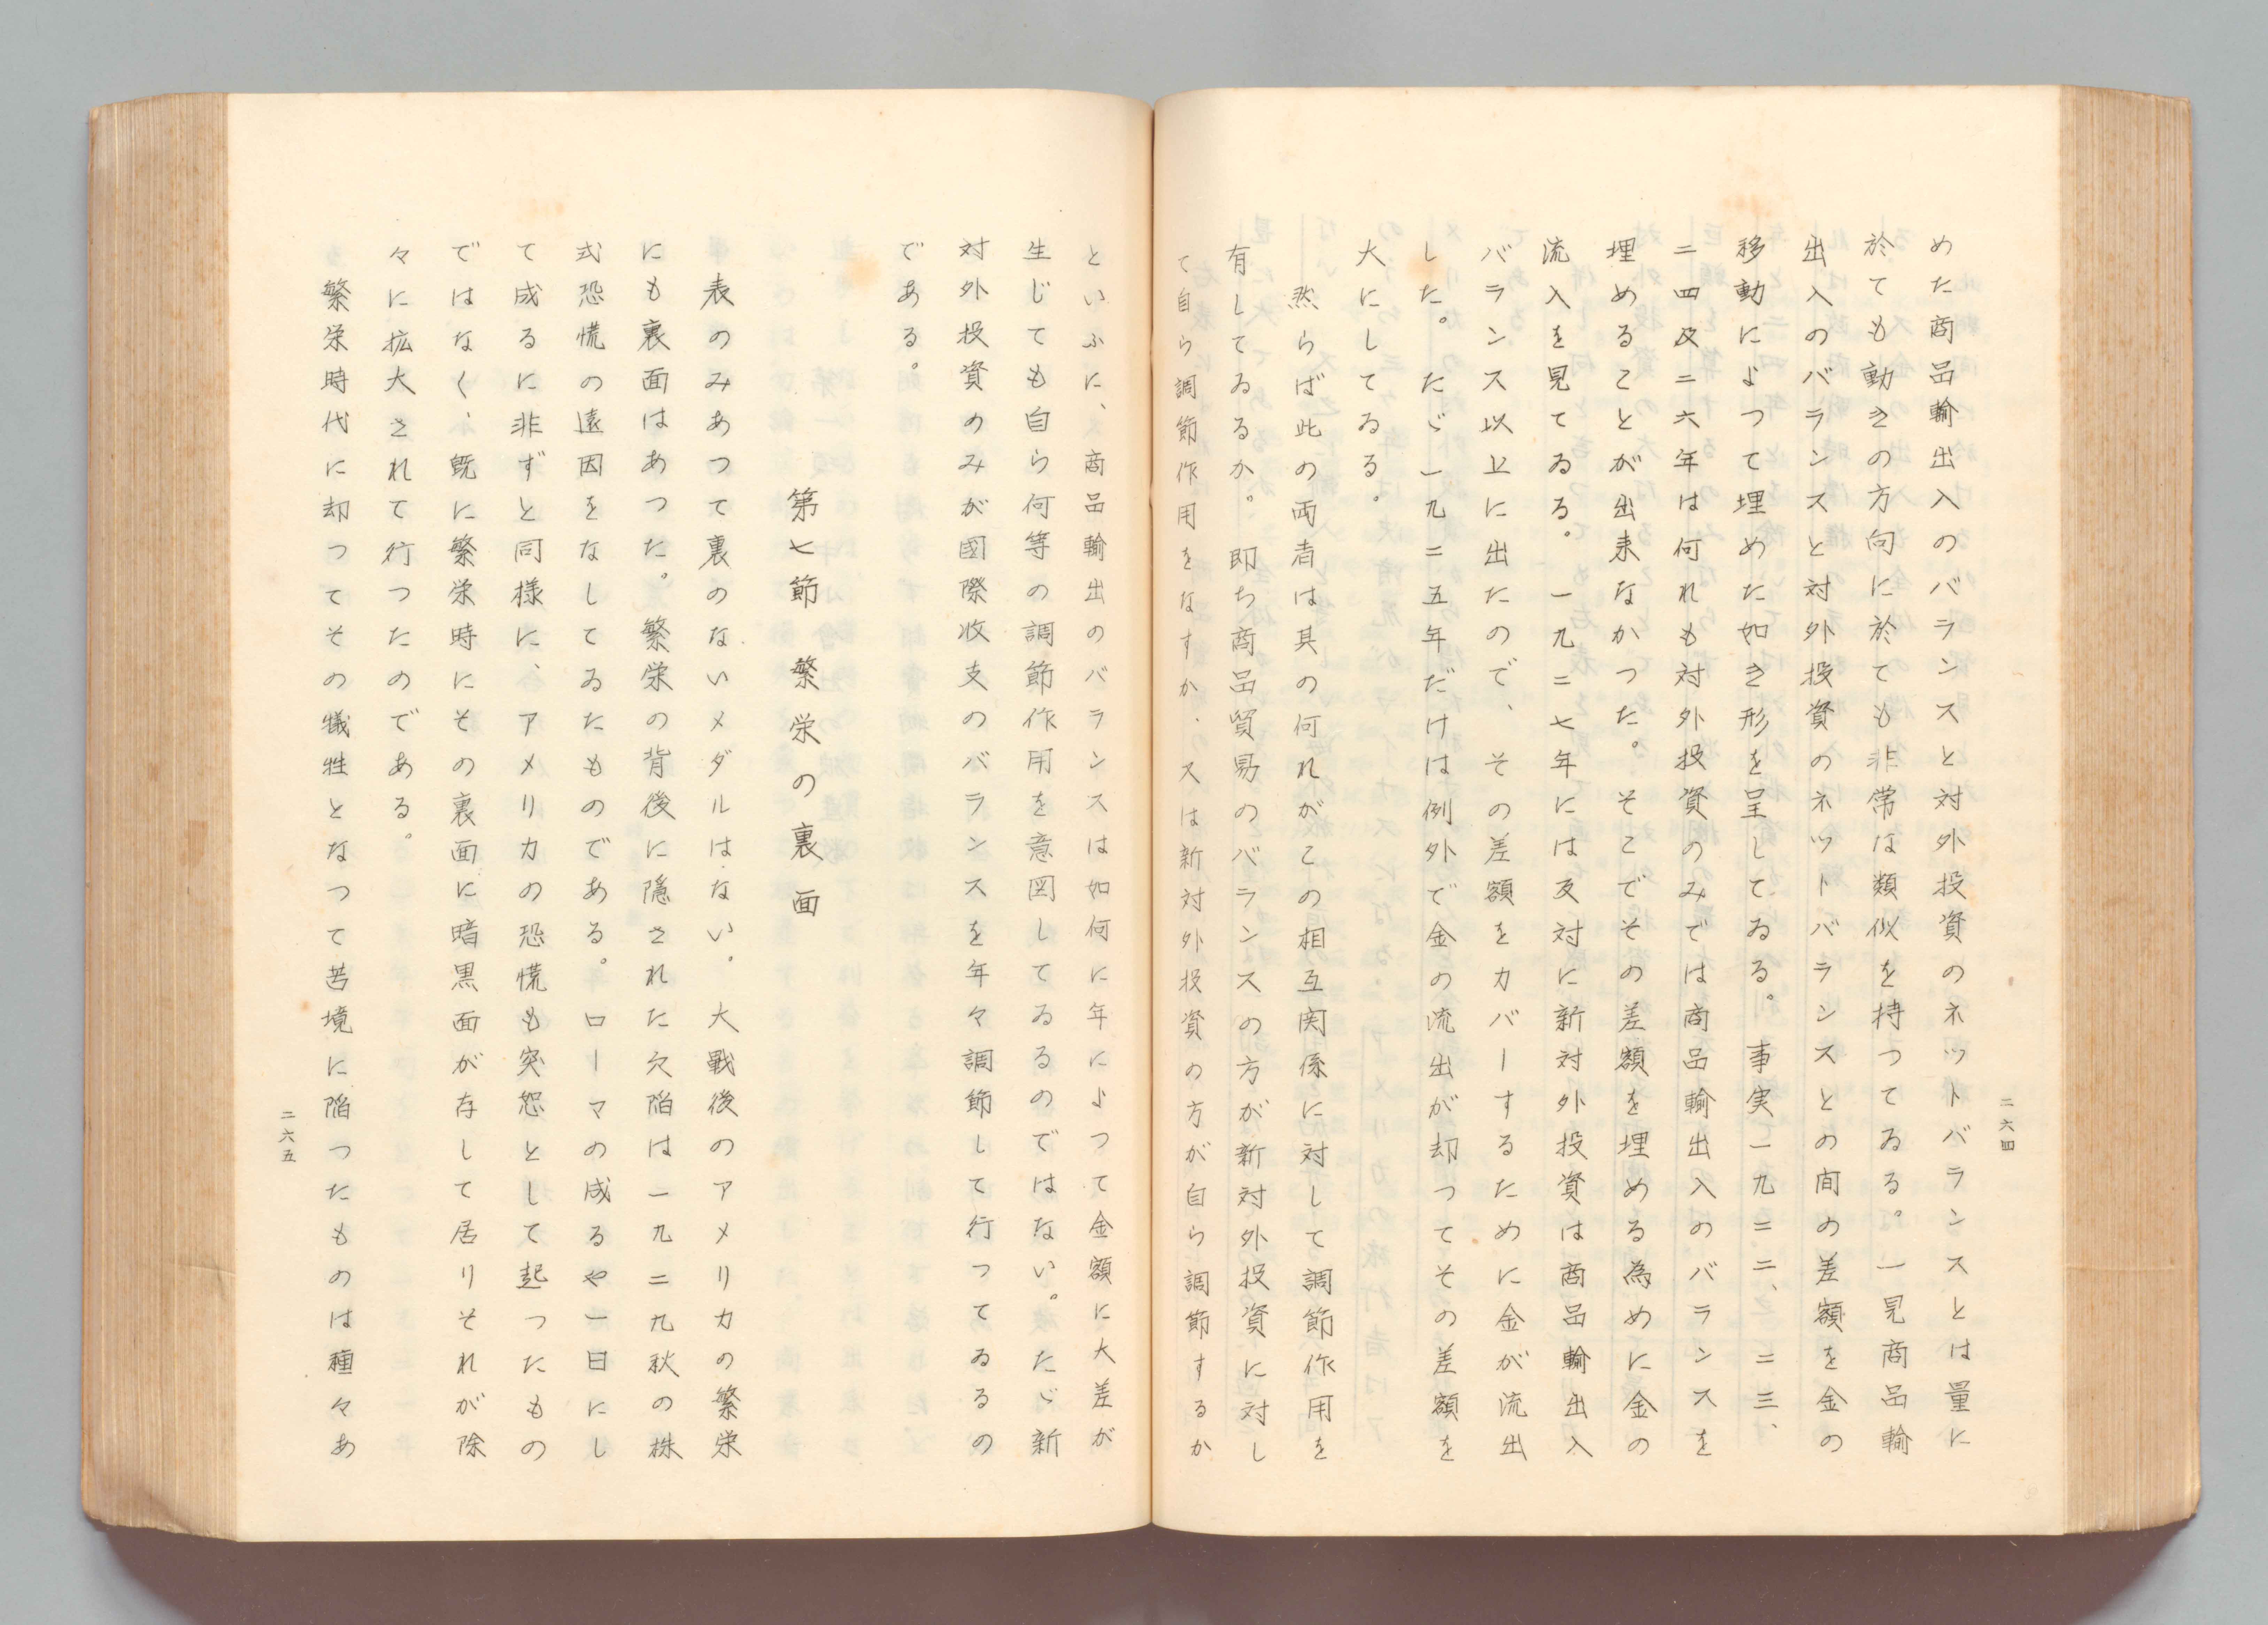 二六四
めた商品輸出入のバランスと対外投資のネットバランスとは量に
於ても動きの方向に於ても非常な類似を持つてゐる。一見商品輸
出入のバランスと対外投資のネットバランスとの間の差額を金の
移動によつて埋めた如き形を呈してゐる。事実一九二二、二三、
二四及二六年は何れも対外投資のみでは商品輸出入のバランスを
埋めることが出来なかつた。そこでその差額を埋める為めに金の
流入を見てゐる。一九二七年には反対に新対外投資は商品輸出入
バランス以上に出たので、その差額をカバーするために金が流出
した。たゞ一九二五年だけは例外で金の流出が却つてその差額を
大にしてゐる。
然らば此の両者は其の何れがこの相互関係に対して調節作用を
有してゐるか。即ち商品貿易のバランスの方が新対外投資に対し
て自ら調節作用をなすか、又は新対外投資の方が自ら調節するか
といふに、商品輸出のバランスは如何に年によつて金額に大差が
生じても自ら何等の調節作用を意図してゐるのではない。たゞ新
対外投資のみが國際收支のバランスを年々調節して行つてゐるの
である。
第七節 繁栄の裏面
表のみあつて裏のないメダルはない。大戰後のアメリカの繁栄
にも裏面はあつた。繁栄の背後に隱された欠陥は一九二九秋の株
式恐慌の遠因をなしてゐたものである。ローマの成るや一日にし
て成るに非ずと同様に、アメリカの恐慌も突怱として起つたもの
ではなく、既に繁栄時にその裏面に暗黒面が存して居りそれが除
々に拡大されて行つたのである。
繁栄時代に却つてその犠牲となつて苦境に陥つたものは種々あ
二六五